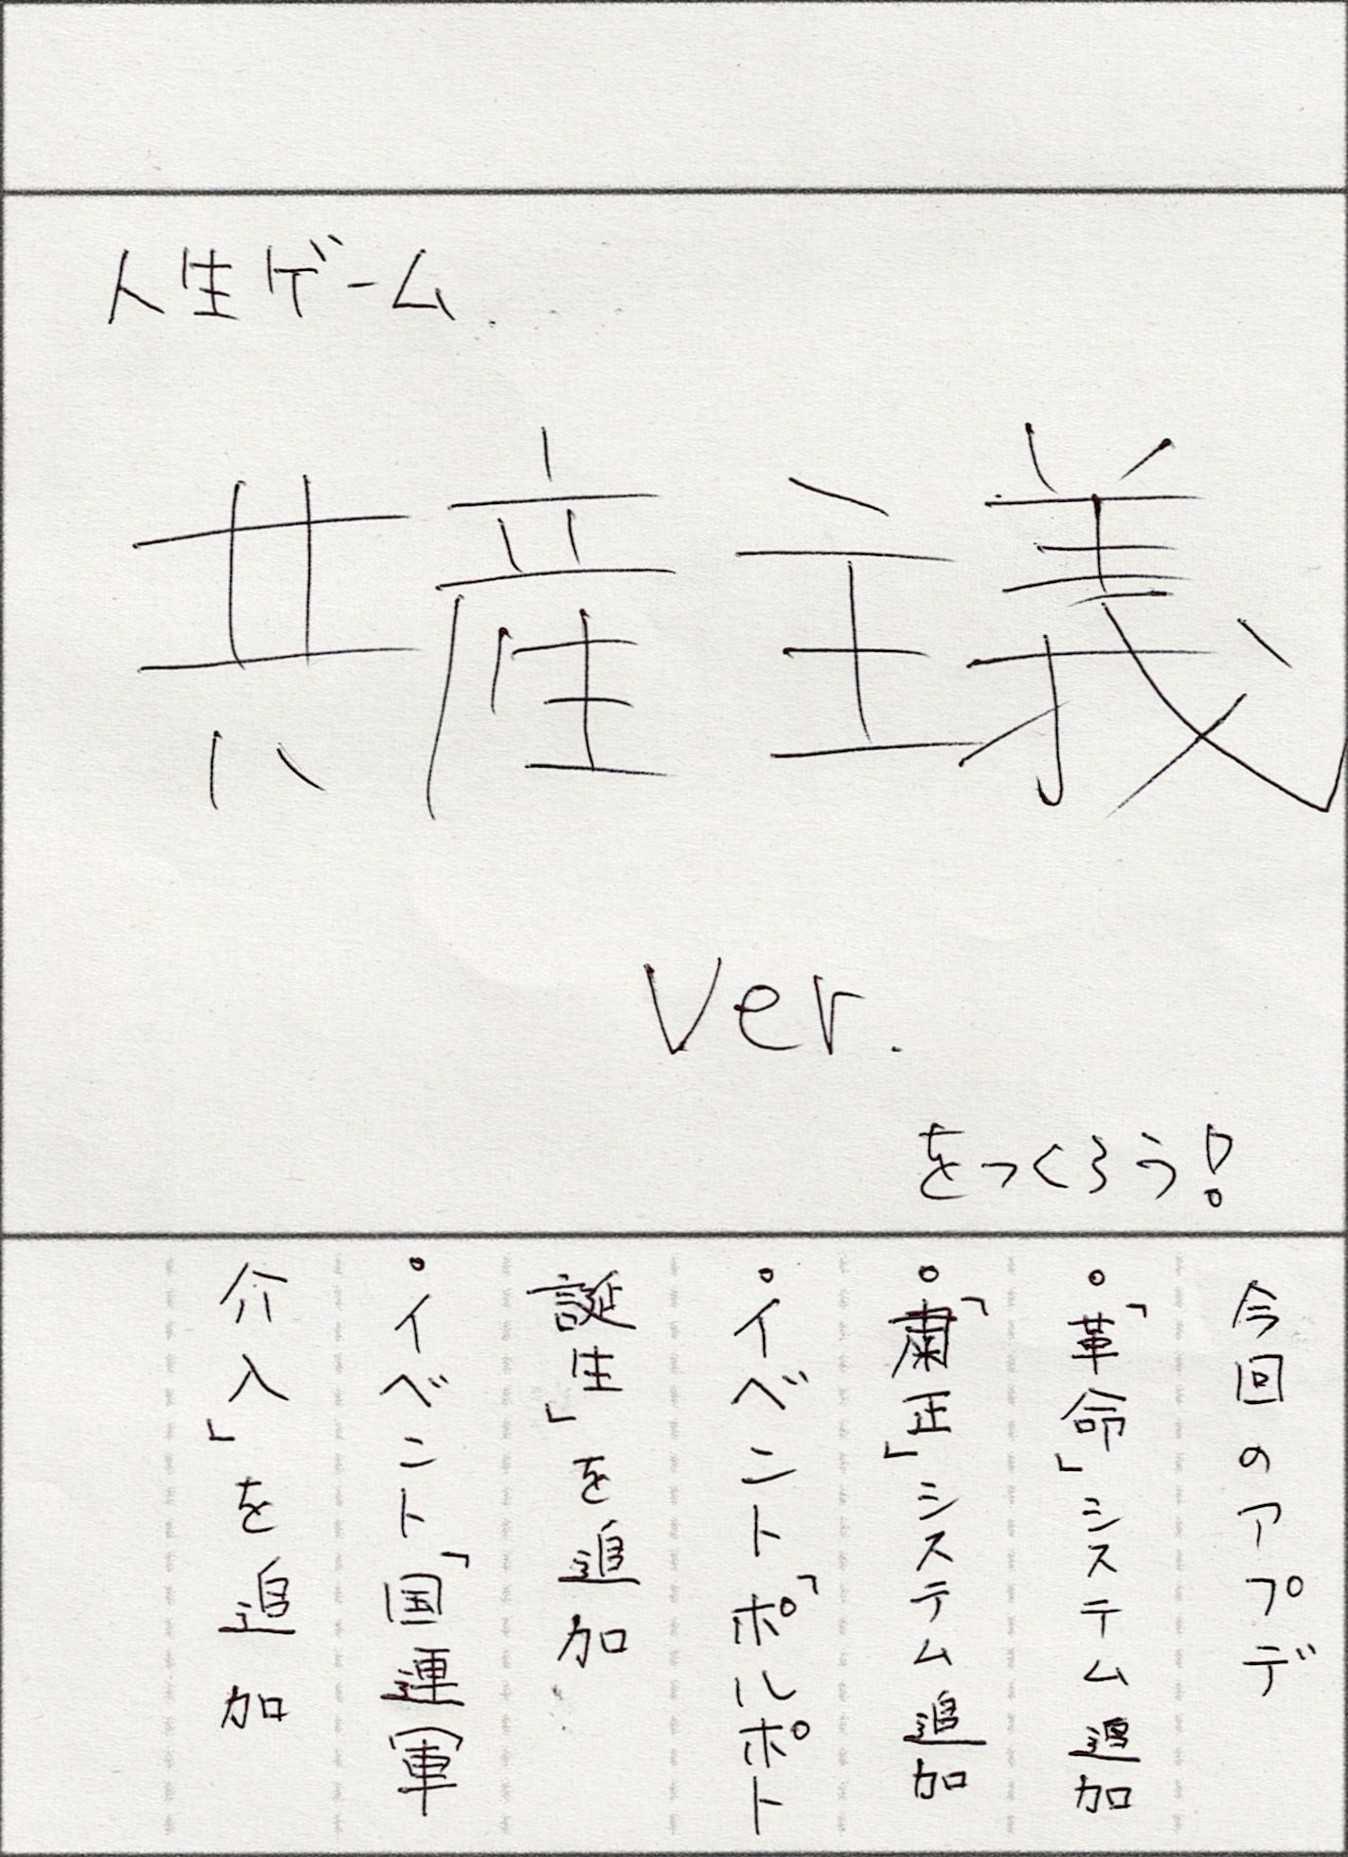 人生ゲーム
共産主義
Ver.
をつくろう!
今回のアプデ
・「革命」システム追加
・「粛正」システム追加
・イベント「ポルポト
誕生」を追加
・イベント「国連軍
介入」を追加